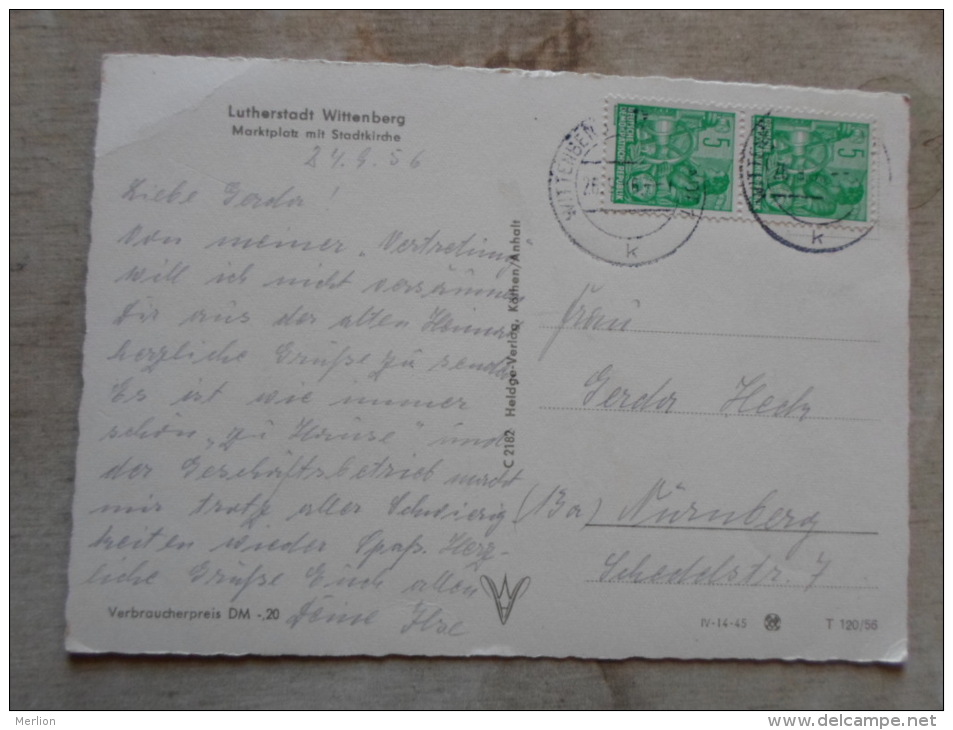 Lutherstadt Wittenberg
Marktplatz mit Stadtkirche
24.9.56
Liebe Gerda!
Von meiner „Vertretung"
will ich nicht versäumen
Dir aus der alten Heimat
herzliche Grüße zu senden
Es ist wie immer
schön „zu Hause" und
der Geschäftsbetrieb macht
mir trotz aller Schwierig
keiten wieder Spaß. Herz-
liche Grüße Euch allen
Deine Ilse
Verbraucherpreis DM -.20
C 2182 Heldge-Verlag, Köthen/Anhalt
DEUTSCHE
DEMOKRATISCHE
REPUBLIK
5
5
WITTENBERG
k
WITTENBERG
k
Frau
Gerda Heck
(13a) Nürnberg
Schedelstr. 7
IV-14-45
T 120/56
Merlion
http://www.delcampe.net